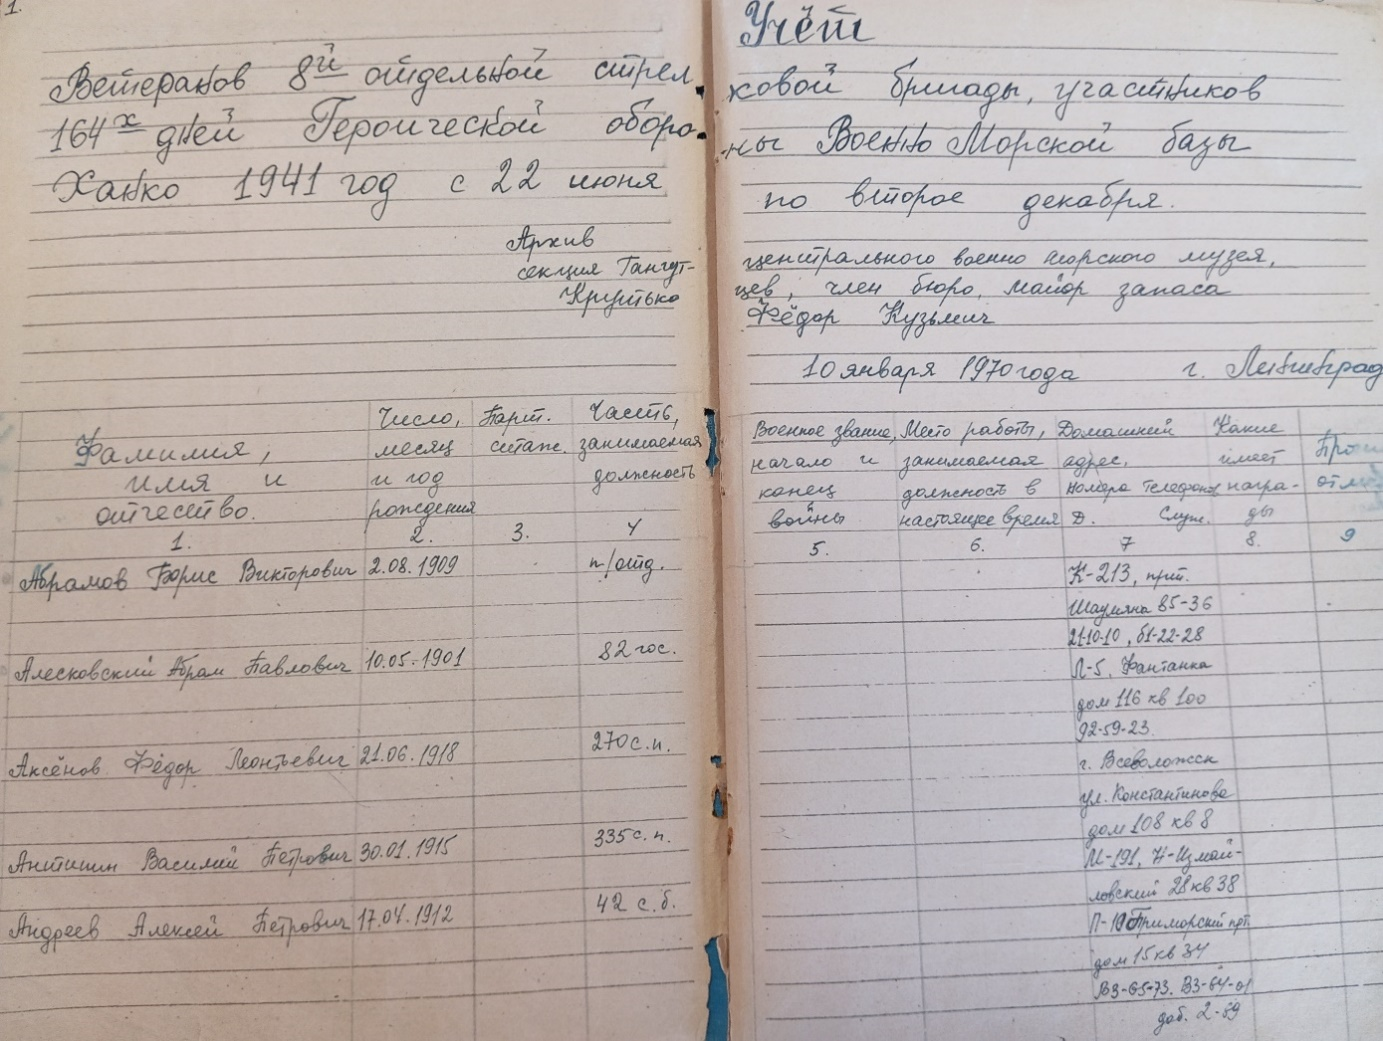 1.
Учёт
Ветеранов 8й отдельной стрелковой бригады, участников
164х дней Героической обороны Военно Морской базы
Ханко 1941 год с 22 июня по второе декабря.
Архив центрального военно морского музея,
секция Гангутцев, член бюро, майор запаса
Крутько Фёдор Кузьмич
10 января 1970 года г. Ленинград
Фамилия, имя и отчество.
Число, месяц и год рождения
Парт. стаж.
Часть, занимаемая должность
Военное звание, начало и конец войны
Место работы, занимаемая должность в настоящее время
Домашний адрес, Номера Телефона Д. Служ.
Какие имеет награды
1. 2. 3. 4 5. 6. 7 8. 9
Абрамов Борис Викторович 2.08.1909 п/отд. К-213, прт.
Шаумяна 85-36
21-10-10, 61-22-28
Алесковский Абрам Павлович 10.05.1901 82 гос. Л-5, Фантанка
дом 116 кв 100
92-59-23.
Аксёнов Фёдор Леонтьевич 21.06.1918 270 с.п. г. Всеволожск
ул. Константинова
дом 108 кв 8
Антипин Василий Петрович 30.01.1915 335 с.п. М-191, Н-Измайловский
28 кв 38
Андреев Алексей Петрович 17.04.1912 42 с.б. Приморский прт.
дом 15 кв 34
В3-65-73. В3-64-01
доб. 2-59